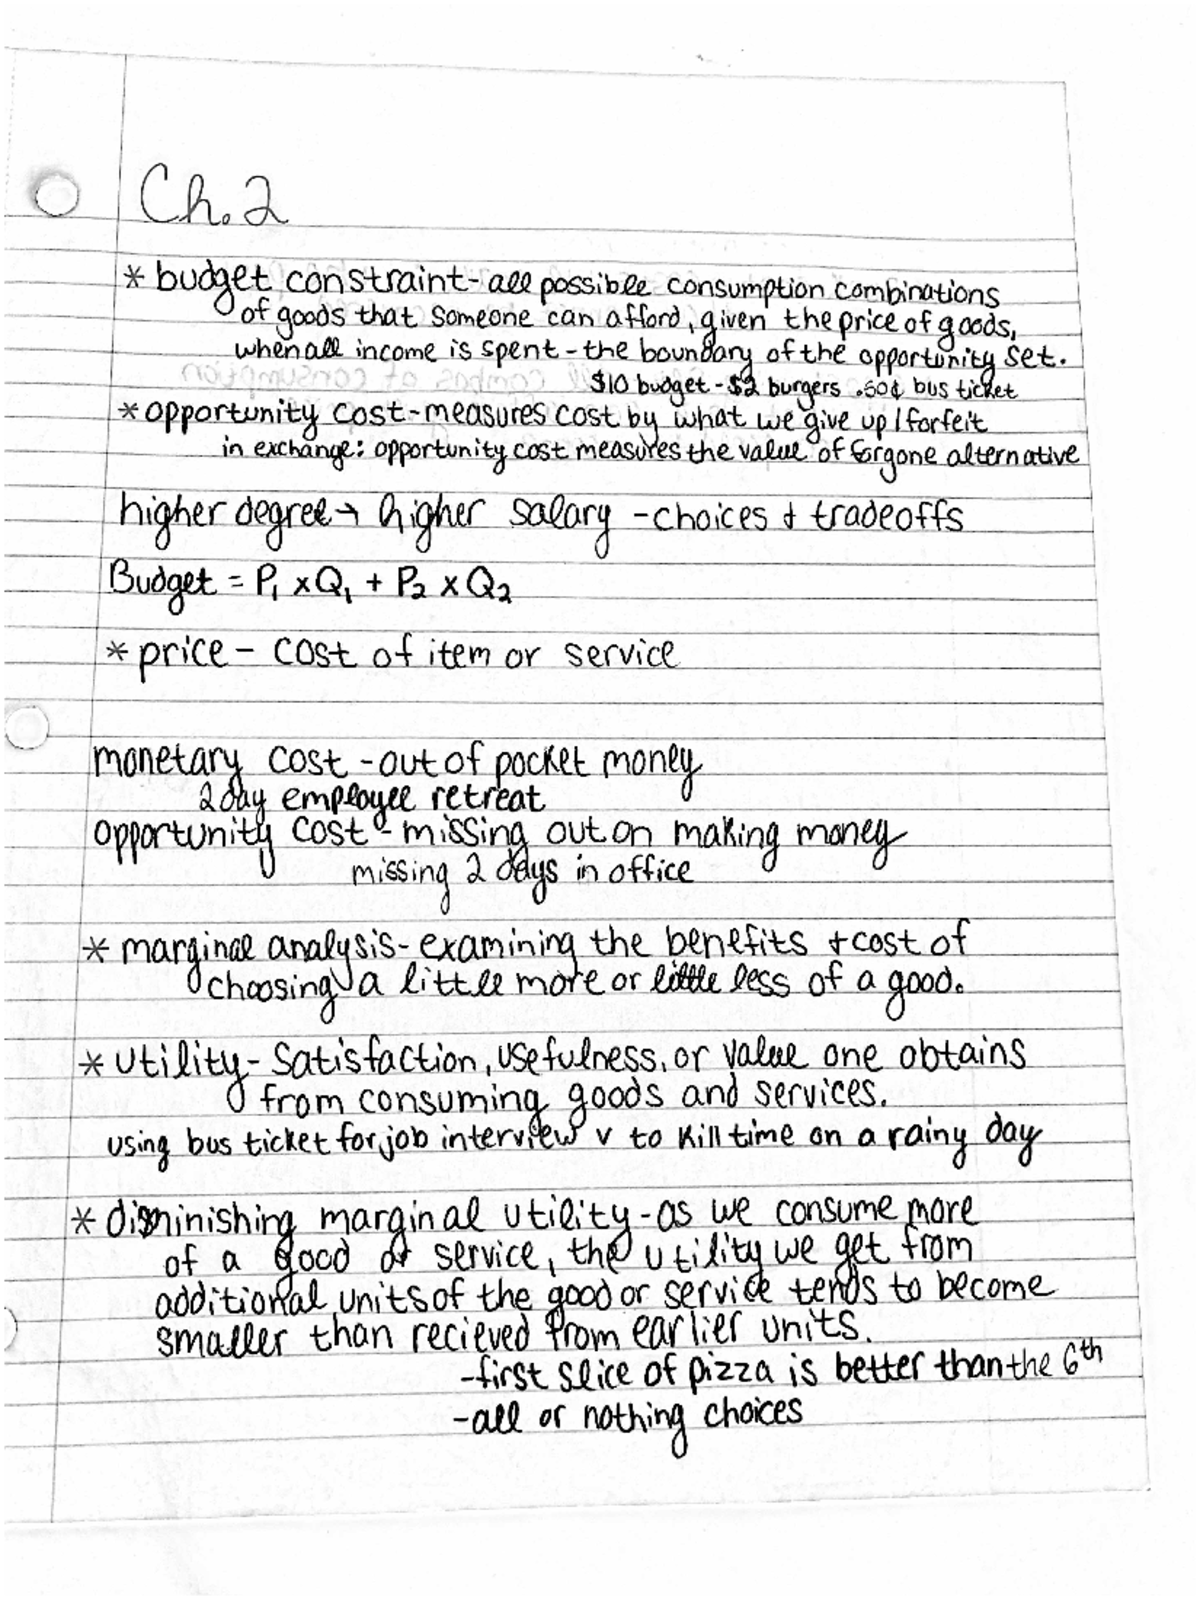 Ch. 2
* budget constraint - all possible consumption combinations
of goods that someone can afford, given the price of goods,
when all income is spent - the boundary of the opportunity set.
$10 budget - $2 burgers .50¢ bus ticket
* opportunity cost - measures cost by what we give up / forfeit
in exchange: opportunity cost measures the value of forgone alternative
higher degree → higher salary - choices & tradeoffs
Budget = P₁ x Q₁ + P₂ x Q₂
* price - cost of item or service
monetary cost - out of pocket money
2 day employee retreat
opportunity cost - missing out on making money
missing 2 days in office
* marginal analysis - examining the benefits + cost of
choosing a little more or little less of a good.
* utility - satisfaction, usefulness, or value one obtains
from consuming goods and services.
using bus ticket for job interview v to kill time on a rainy day
* diminishing marginal utility - as we consume more
of a good or service, the utility we get from
additional units of the good or service tends to become
smaller than recieved from earlier units.
- first slice of pizza is better than the 6th
- all or nothing choices